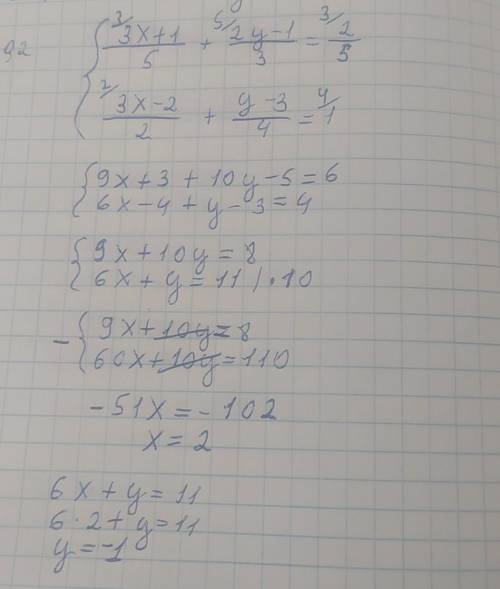 92
{ ³/ (3x+1)/5 + ⁵/ (2y-1)/3 = ³/ 2/5
{ ²/ (3x-2)/2 + (y-3)/4 = ⁴/ 1
{ 9x+3+10y-5=6
{ 6x-4+y-3=4
{ 9x+10y=8
{ 6x+y=11 /·10
- { 9x+10y=8
{ 60x+10y=110
-51x=-102
x=2
6x+y=11
6·2+y=11
y=-1